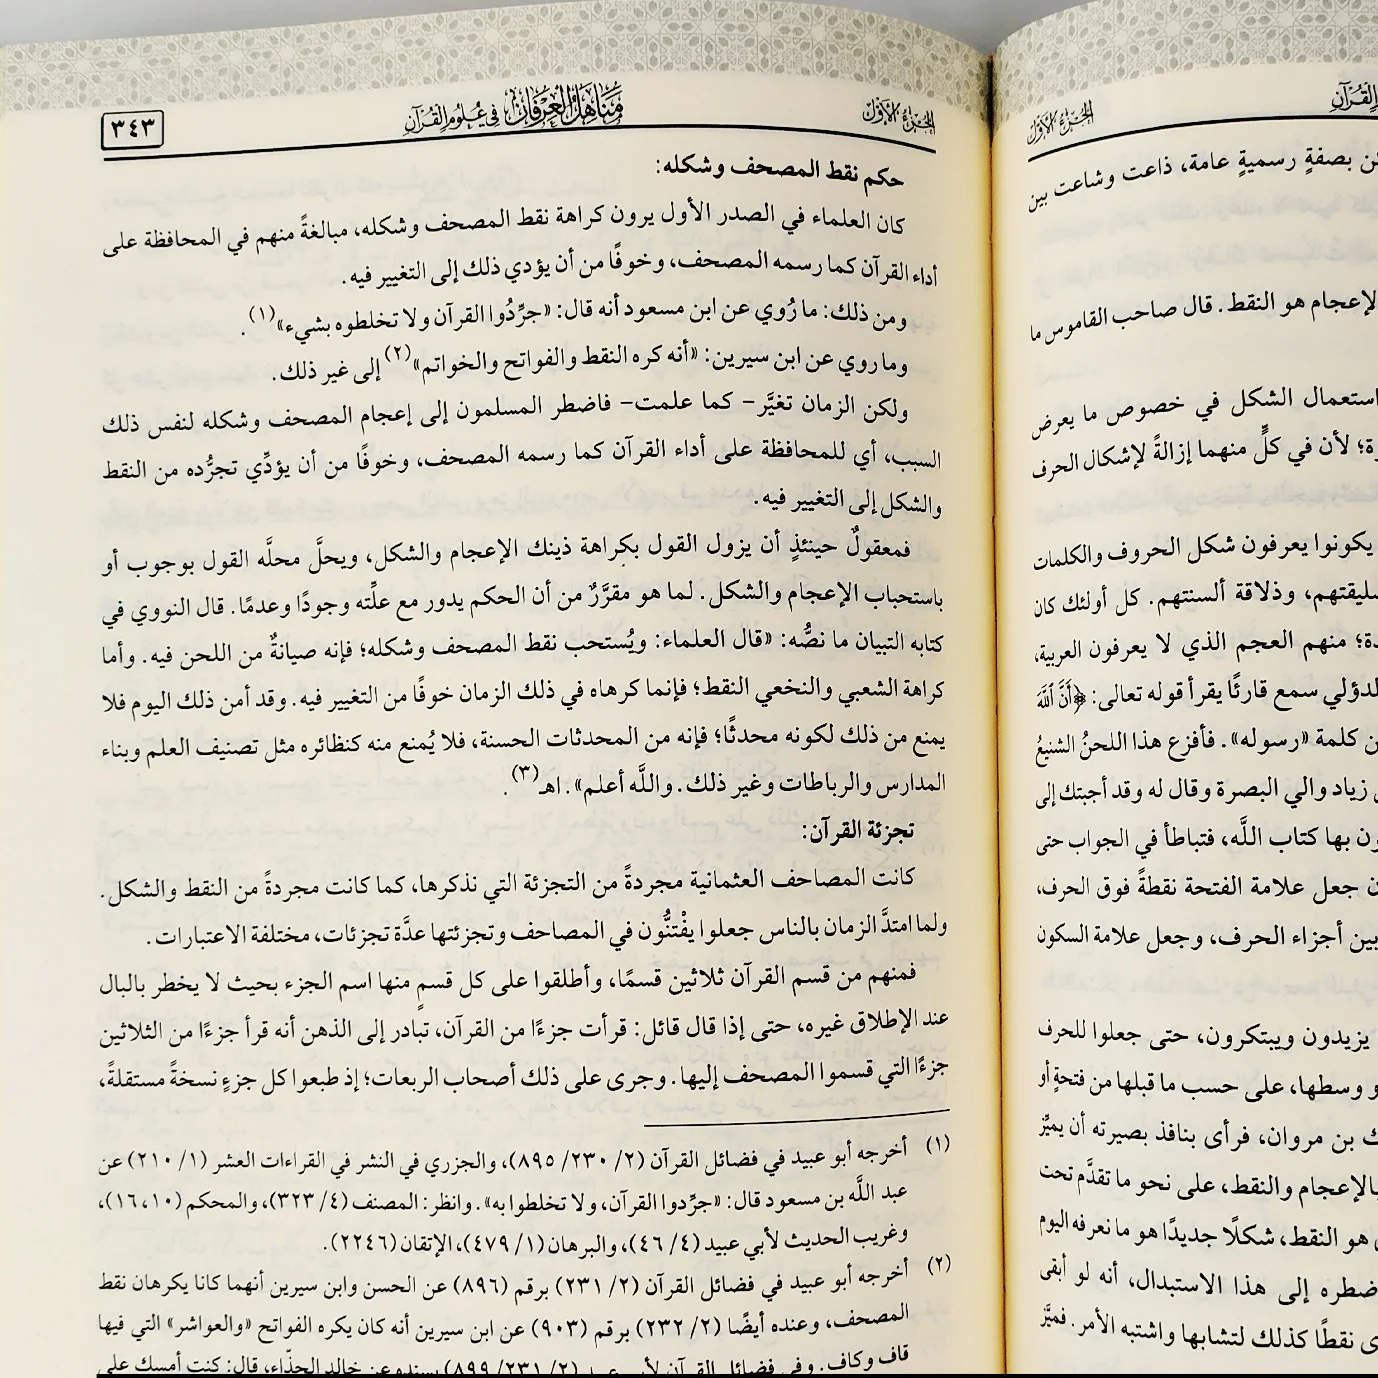 الجزء الأول
مناهل العرفان في علوم القرآن
٣٤٣
حكم نقط المصحف وشكله:
كان العلماء في الصدر الأول يرون كراهة نقط المصحف وشكله، مبالغةً منهم في المحافظة على
أداء القرآن كما رسمه المصحف، وخوفًا من أن يؤدي ذلك إلى التغيير فيه.
ومن ذلك: ما رُوي عن ابن مسعود أنه قال: «جرِّدُوا القرآن ولا تخلطوه بشيء»(١).
وما روي عن ابن سيرين: «أنه كره النقط والفواتح والخواتم»(٢) إلى غير ذلك.
ولكن الزمان تغيَّر- كما علمت- فاضطر المسلمون إلى إعجام المصحف وشكله لنفس ذلك
السبب، أي للمحافظة على أداء القرآن كما رسمه المصحف، وخوفًا من أن يؤدِّي تجرُّده من النقط
والشكل إلى التغيير فيه.
فمعقولٌ حينئذٍ أن يزول القول بكراهة ذينك الإعجام والشكل، ويحلَّ محلَّه القول بوجوب أو
باستحباب الإعجام والشكل. لما هو مقرَّرٌ من أن الحكم يدور مع علِّته وجودًا وعدمًا. قال النووي في
كتابه التبيان ما نصُّه: «قال العلماء: ويُستحب نقط المصحف وشكله؛ فإنه صيانةٌ من اللحن فيه. وأما
كراهة الشعبي والنخعي النقط؛ فإنما كرهاه في ذلك الزمان خوفًا من التغيير فيه. وقد أمن ذلك اليوم فلا
يمنع من ذلك لكونه محدثًا؛ فإنه من المحدثات الحسنة، فلا يُمنع منه كنظائره مثل تصنيف العلم وبناء
المدارس والرباطات وغير ذلك. واللَّه أعلم». اهـ(٣).
تجزئة القرآن:
كانت المصاحف العثمانية مجردةً من التجزئة التي نذكرها، كما كانت مجردةً من النقط والشكل.
ولما امتدَّ الزمان بالناس جعلوا يفْتنُّون في المصاحف وتجزئتها عدَّة تجزئات، مختلفة الاعتبارات.
فمنهم من قسم القرآن ثلاثين قسمًا، وأطلقوا على كل قسمٍ منها اسم الجزء بحيث لا يخطر بالبال
عند الإطلاق غيره، حتى إذا قال قائل: قرأت جزءًا من القرآن، تبادر إلى الذهن أنه قرأ جزءًا من الثلاثين
جزءًا التي قسموا المصحف إليها. وجرى على ذلك أصحاب الربعات؛ إذ طبعوا كل جزءٍ نسخةً مستقلةً،
(١) أخرجه أبو عبيد في فضائل القرآن (٢/ ٢٣٠/ ٨٩٥)، والجزري في النشر في القراءات العشر (١/ ٢١٠) عن
عبد اللَّه بن مسعود قال: «جرِّدوا القرآن، ولا تخلطوا به». وانظر: المصنف (٤/ ٣٢٣)، والمحكم (١٠، ١٦)،
وغريب الحديث لأبي عبيد (٤/ ٤٦)، والبرهان (١/ ٤٧٩)، الإتقان (٢٢٤٦).
(٢) أخرجه أبو عبيد في فضائل القرآن (٢/ ٢٣١) برقم (٨٩٦) عن الحسن وابن سيرين أنهما كانا يكرهان نقط
المصحف، وعنده أيضًا (٢/ ٢٣٢) برقم (٩٠٣) عن ابن سيرين أنه كان يكره الفواتح «والعواشر» التي فيها
قاف وكاف. وفي فضائل القرآن لأبي عبيد (٢/ ٢٣١/ ٨٩٩) بسنده عن خالد الحذّاء، قال: كنت أمسك على
القرآن
الجزء الأول
بصفةٍ رسميةٍ عامة، ذاعت وشاعت بين
الإعجام هو النقط. قال صاحب القاموس ما
استعمال الشكل في خصوص ما يعرض
لأن في كلٍّ منهما إزالةً لإشكال الحرف
يكونوا يعرفون شكل الحروف والكلمات
وذلاقة ألسنتهم. كل أولئك كان
منهم العجم الذي لا يعرفون العربية،
سمع قارئًا يقرأ قوله تعالى: ﴿أَنَّ ٱللَّهَ
كلمة «رسوله». فأفزع هذا اللحنُ الشنيعُ
زياد والي البصرة وقال له وقد أجبتك إلى
بها كتاب اللَّه، فتباطأ في الجواب حتى
جعل علامة الفتحة نقطةً فوق الحرف،
بين أجزاء الحرف، وجعل علامة السكون
يزيدون ويبتكرون، حتى جعلوا للحرف
وسطها، على حسب ما قبلها من فتحةٍ أو
بن مروان، فرأى بنافذ بصيرته أن يميِّز
بالإعجام والنقط، على نحو ما تقدَّم تحت
هو النقط، شكلًا جديدًا هو ما نعرفه اليوم
إلى هذا الاستبدال، أنه لو أبقى
نقطًا كذلك لتشابها واشتبه الأمر. فميَّز